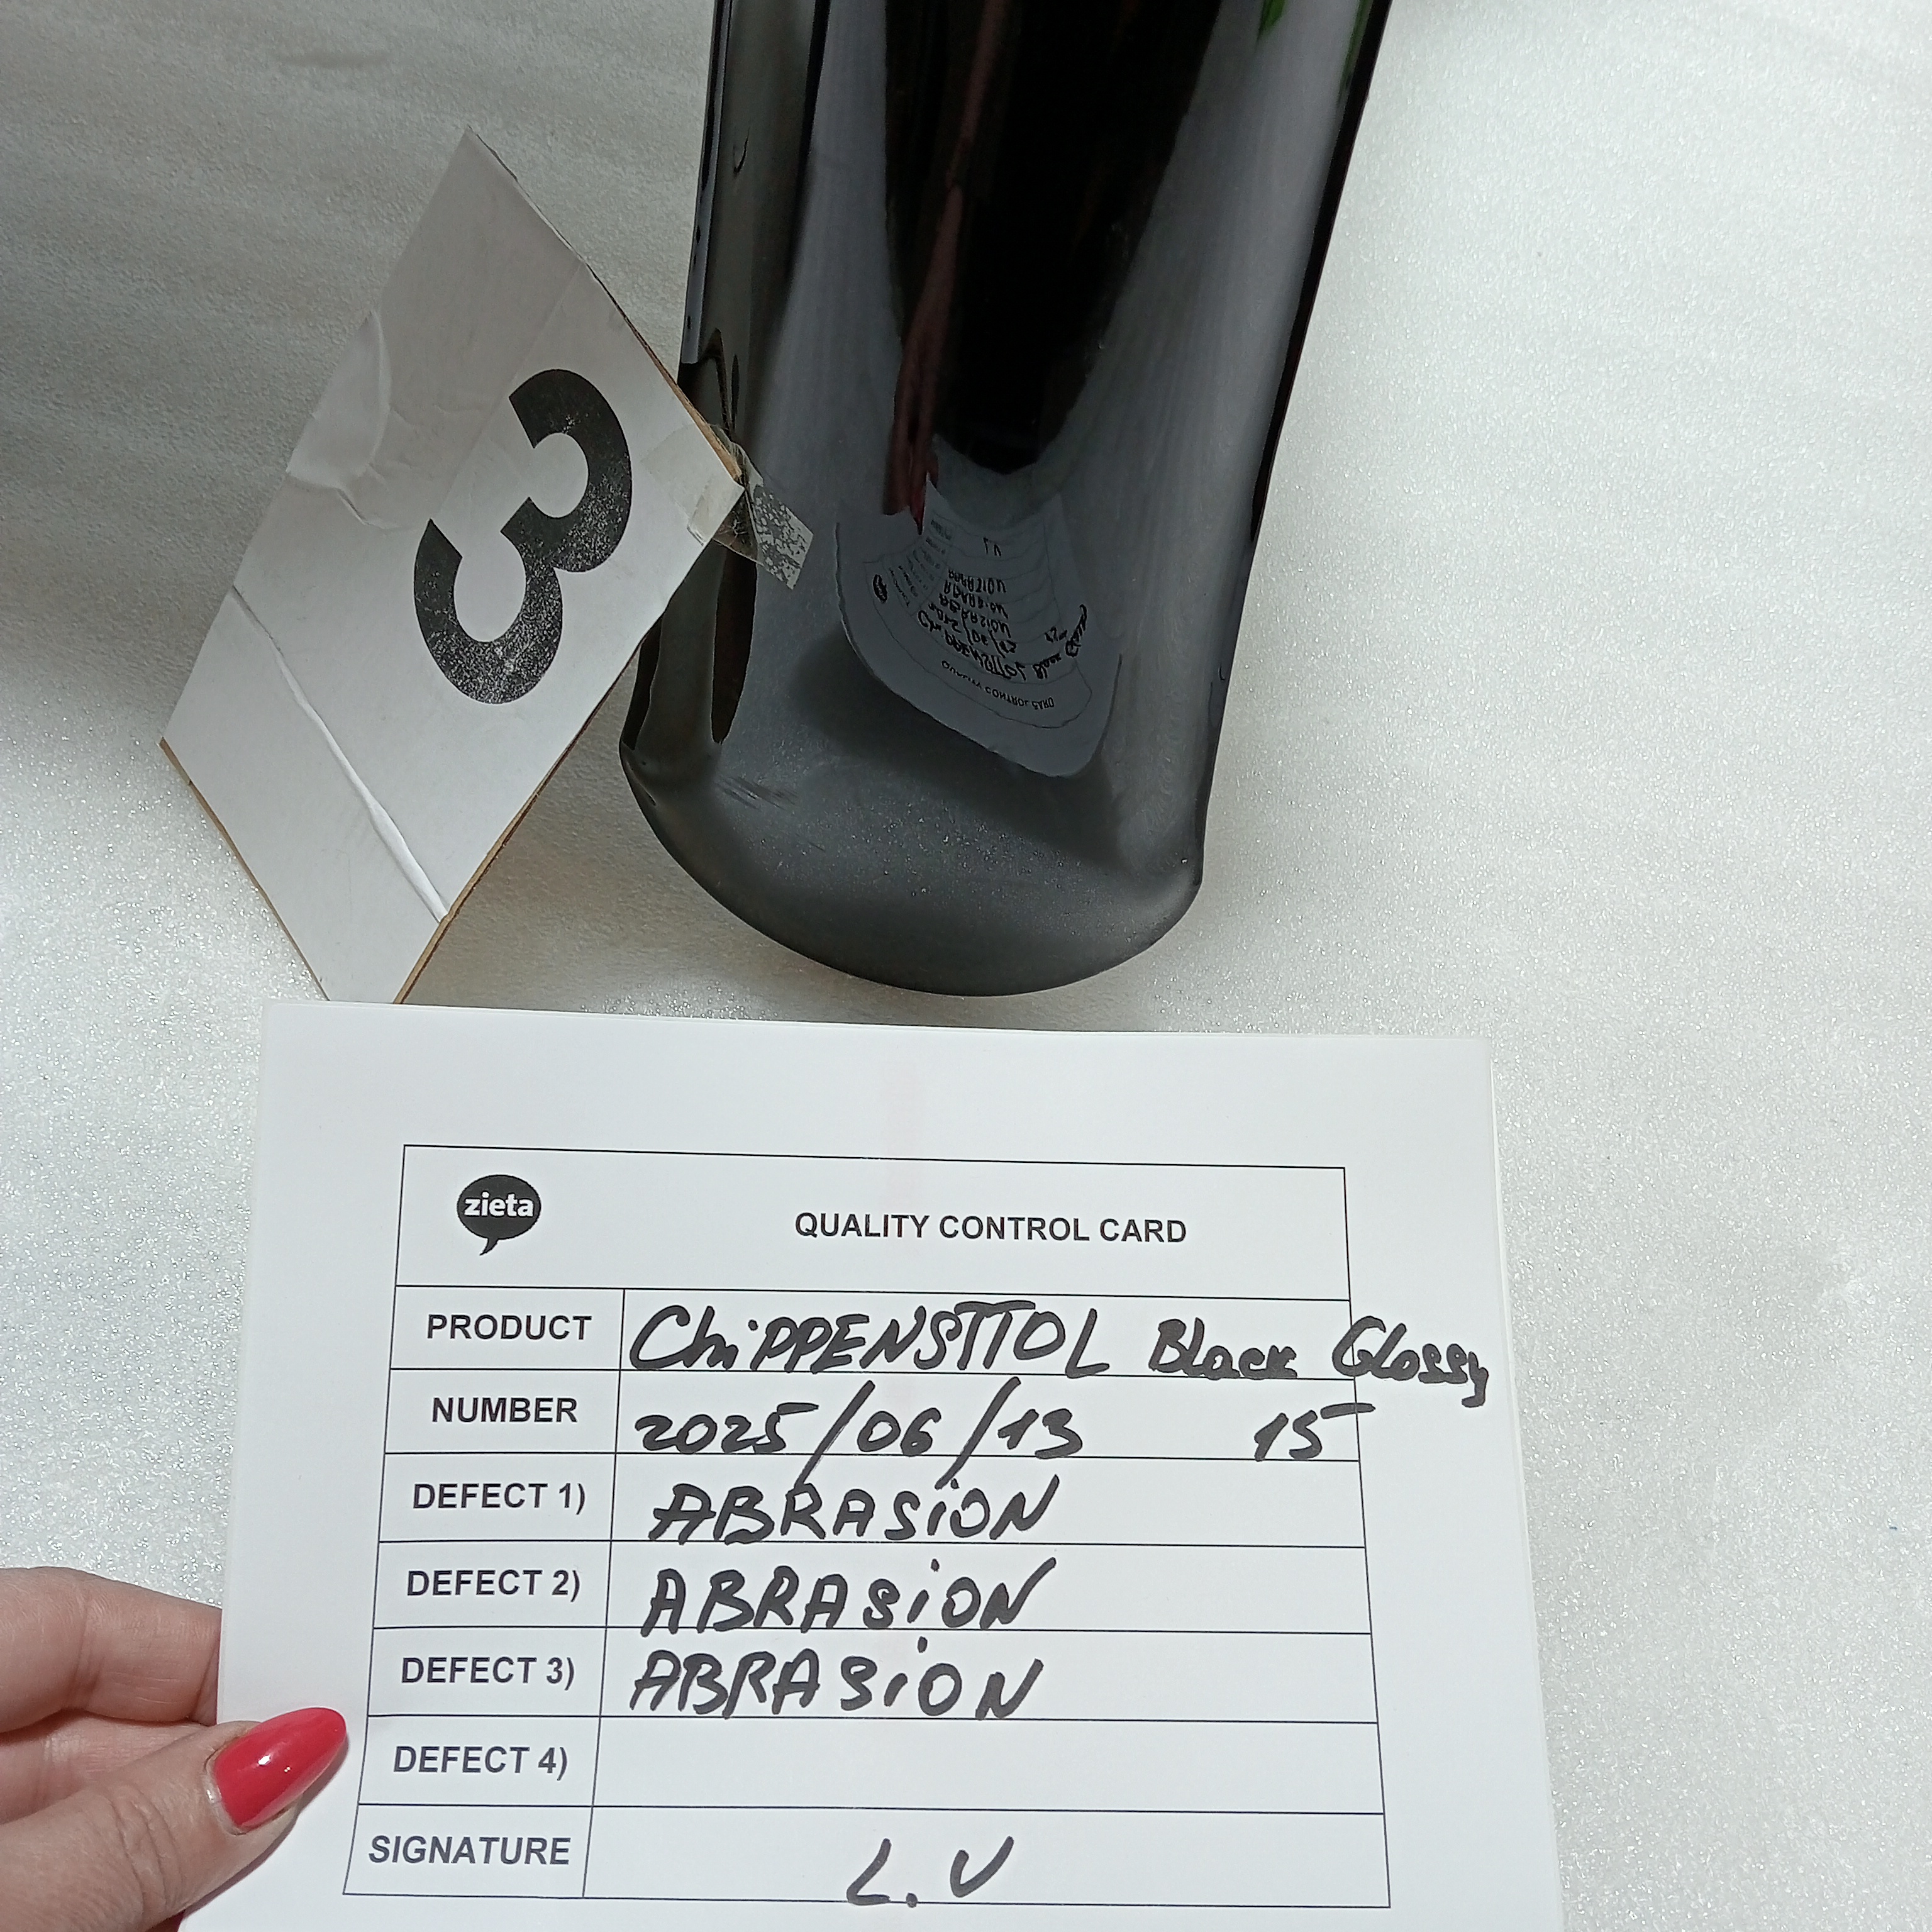 3
zieta
QUALITY CONTROL CARD
PRODUCT ChiPPENSTTOL Black Glossy
NUMBER 2025/06/13 15
DEFECT 1) ABRASiON
DEFECT 2) ABRASiON
DEFECT 3) ABRASiON
DEFECT 4)
SIGNATURE L.V